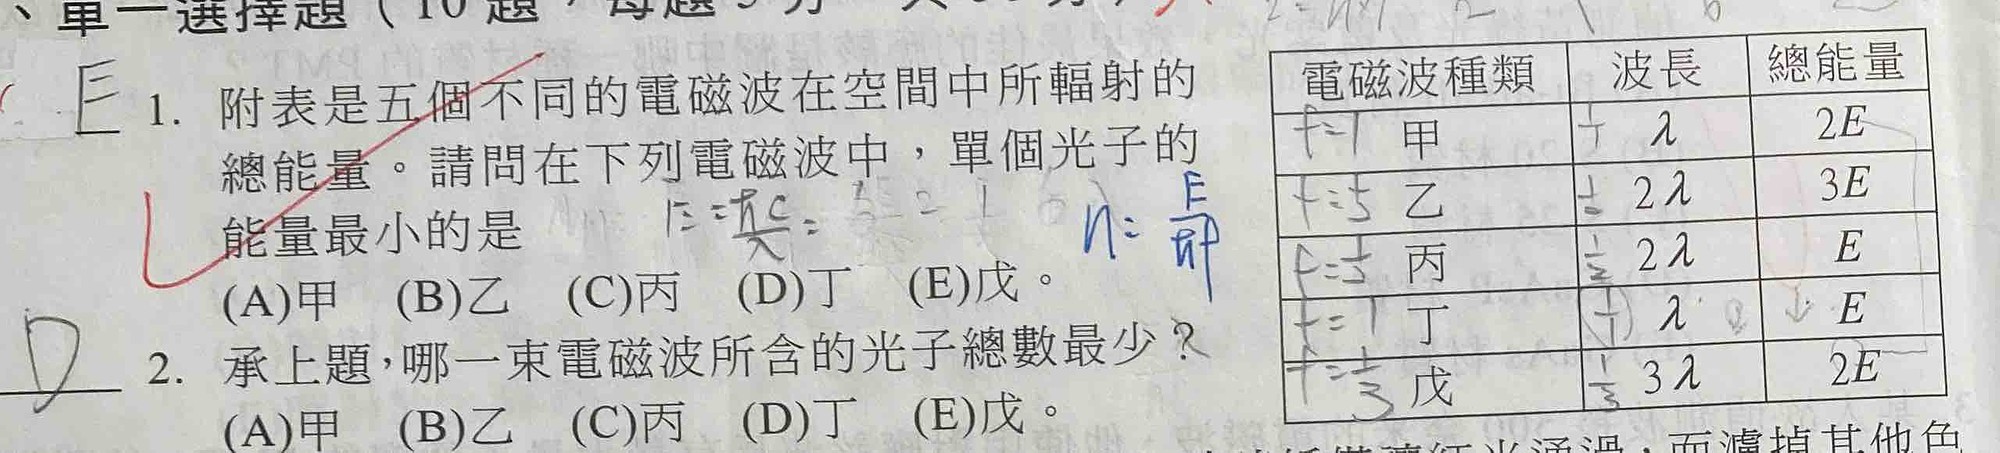 、單一選擇題（10題，每題
E 1. 附表是五個不同的電磁波在空間中所輻射的
總能量。請問在下列電磁波中，單個光子的
能量最小的是
E = hc/λ =
n = E/hf
(A)甲 (B)乙 (C)丙 (D)丁 (E)戊。
D 2. 承上題，哪一束電磁波所含的光子總數最少？
(A)甲 (B)乙 (C)丙 (D)丁 (E)戊。
電磁波種類 波長 總能量
f=1 甲 1/1 λ 2E
乙 2λ 3E
丙 1/2 2λ E
f=1 丁 (1/1) λ E
f=1/3 戊 1/3 3λ 2E
，而濾掉其他色